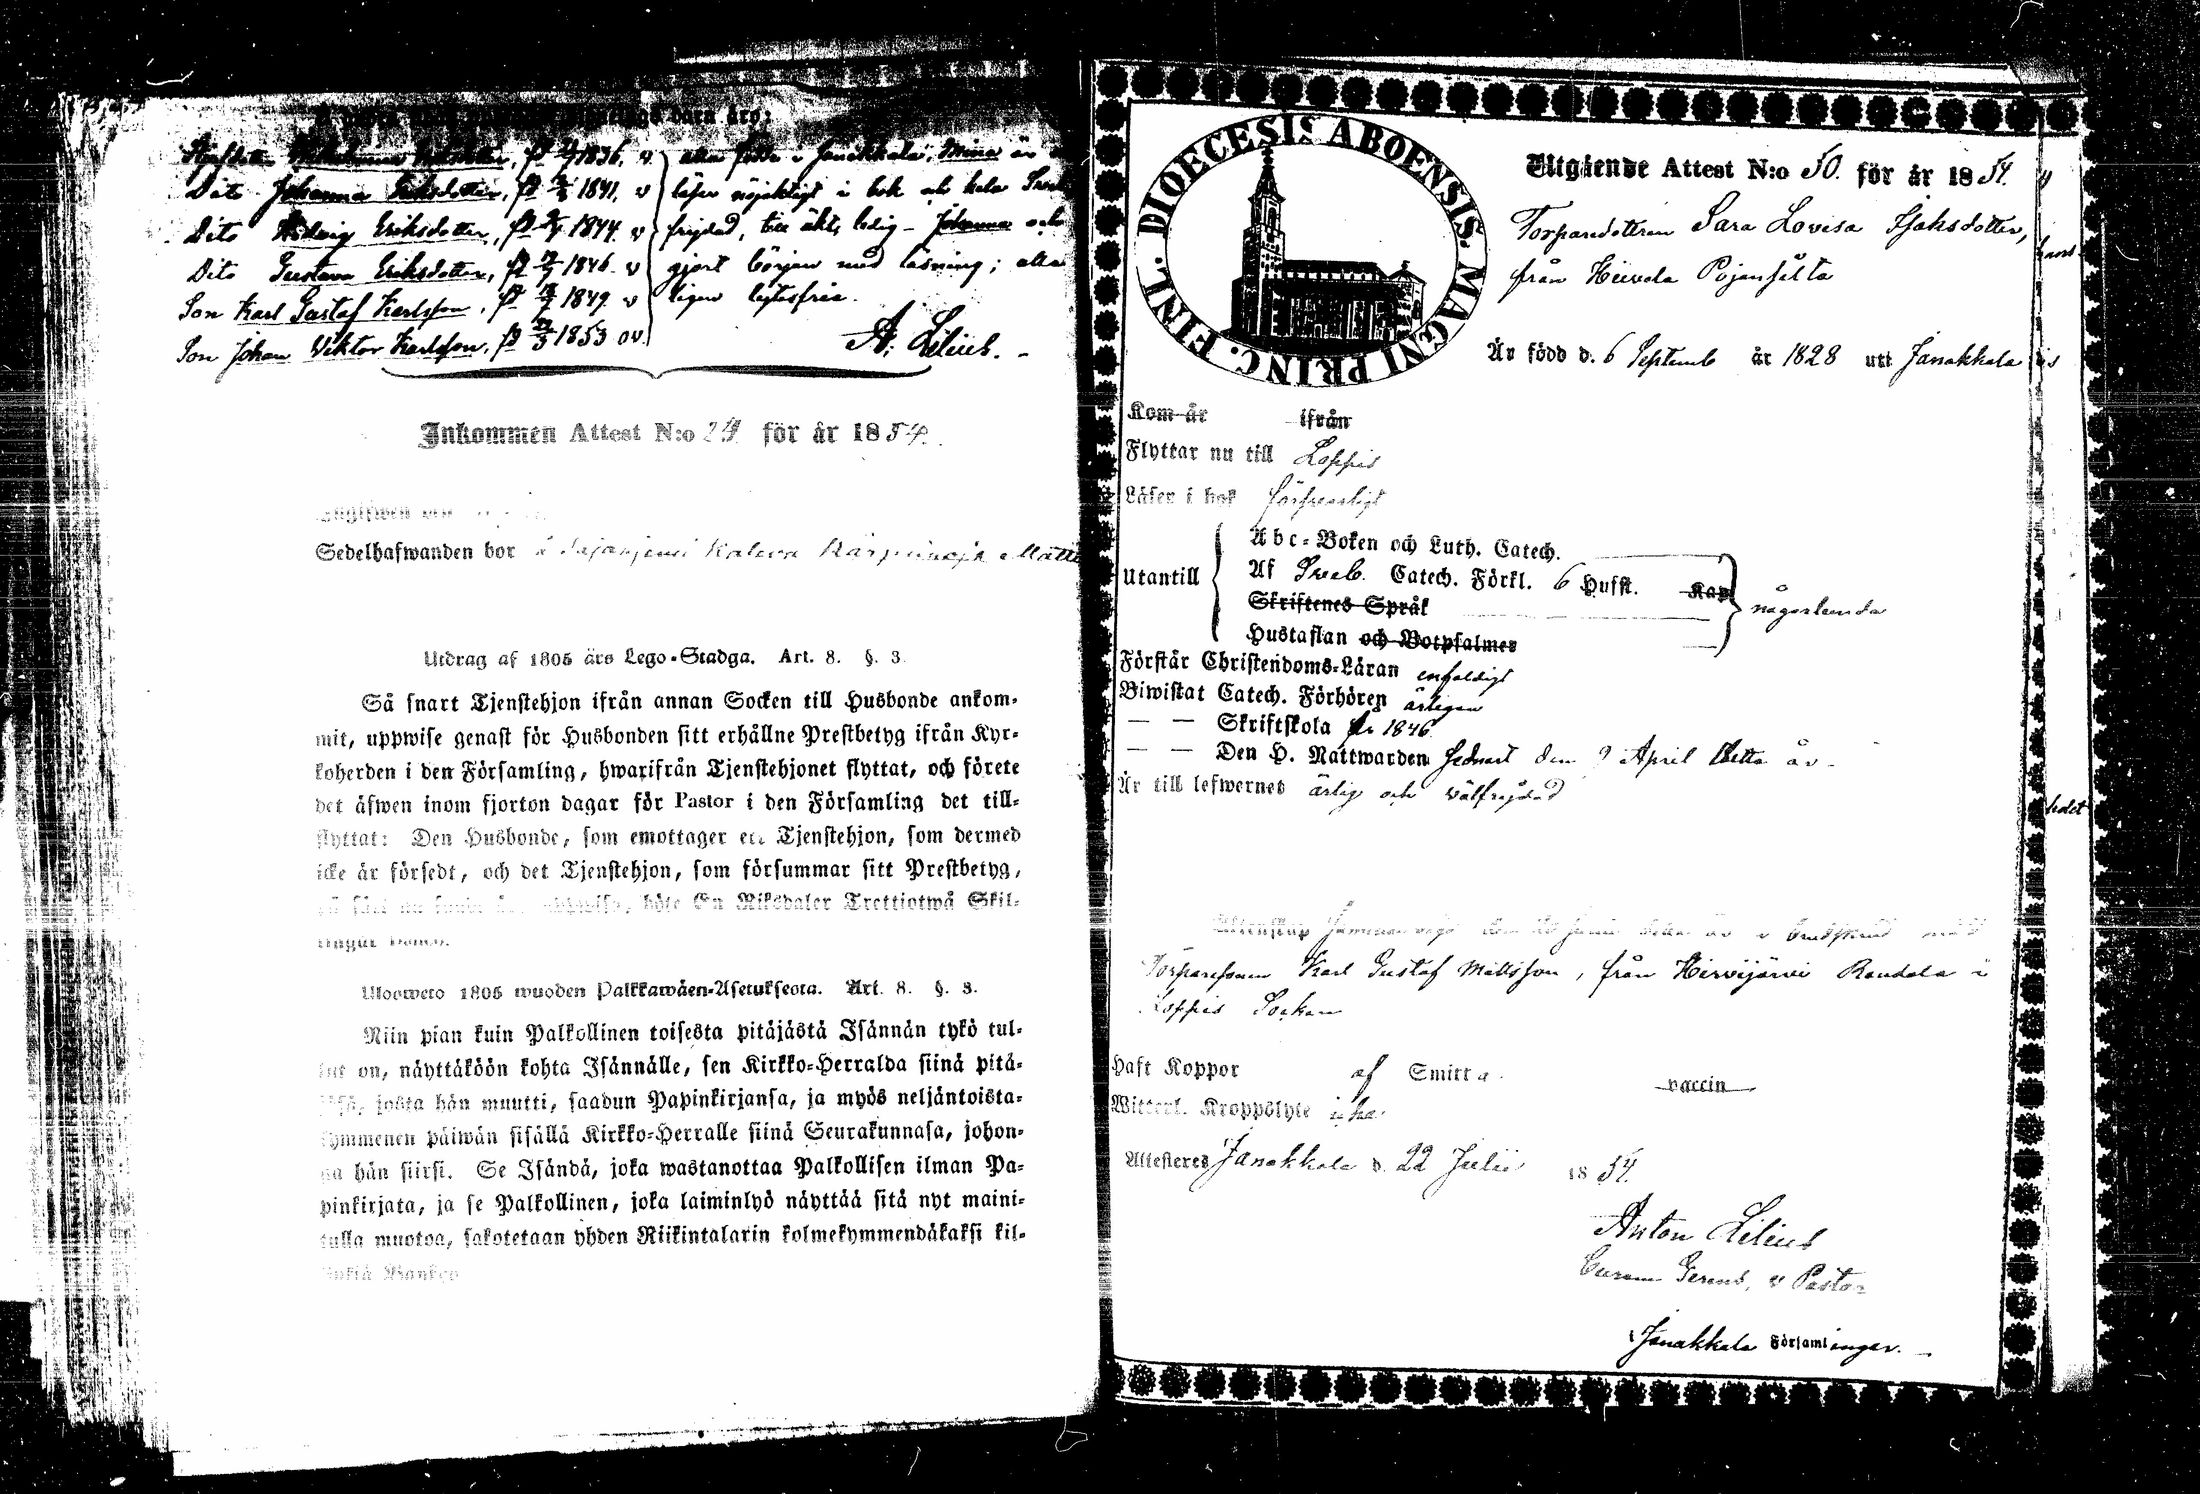 barn äro:
Dito Johanna Eriksdotter, 1841, v
Dito Hedvig Eriksdotter, 1844, v
Dito Gustava Eriksdotter, 1846, v
Son Karl Gustaf Karlsson, 1849 v
Son Johan Viktor Karlsson, 1853 ov.
alla födde i Janakkala; Mina är
läser nöjaktigt i bok och hela
frejdad, till äkt. ledig – Johanna och
gjort början med läsning; alla
ligen lytesfria.
A. Lilius.
Inkommen Attest N:o 24 för år 1854.
Sedelhafwanden bor
Utdrag af 1805 års Lego-Stadga. Art. 8. §. 3.
Så snart Tjenstehjon ifrån annan Socken till Husbonde ankom-
mit, uppwise genast för Husbonden sitt erhållne Prestbetyg ifrån Kyr-
koherden i den Församling, hwarifrån Tjenstehjonet flyttat, och förete
det äfwen inom fjorton dagar för Pastor i den Församling det till-
flyttat: Den Husbonde, som emottager ett Tjenstehjon, som dermed
icke är försedt, och det Tjenstehjon, som försummar sitt Prestbetyg,
böte En Riksdaler Trettiotwå Skil-
lingar Banco.
Ulosweto 1805 wuoden Palkkawäen-Asetuksesta. Art. 8. §. 3.
Niin pian kuin Palkollinen toisesta pitäjästä Isännän tykö tul-
lut on, näyttäköön kohta Isännälle, sen Kirkko-Herralda siinä pitä-
jäsä, josta hän muutti, saadun Papinkirjansa, ja myös neljäntoista-
kymmenen päiwän sisällä Kirkko-Herralle siinä Seurakunnasa, johon-
ga hän siirsi. Se Isändä, joka wastanottaa Palkollisen ilman Pa-
pinkirjata, ja se Palkollinen, joka laiminlyö näyttää sitä nyt maini-
tulla muotoa, sakotetaan yhden Riikintalarin kolmekymmendäkaksi kil-
linkiä Bankos
DIOECESIS ABOENSIS MAGNI PRINC. FINL.
Utgående Attest N:o 50. för år 1854.
Torparedottren Sara Lovisa Isaksdotter,
från Hiivola Pojansilta
Är född d. 6 Septemb år 1828 uti Janakkala
Kom år ifrån
Flyttar nu till Loppis
Läser i bok försvarligt
Utantill
Abc-Boken och Luth. Catech.
Af Sveb. Catech. Förkl. 6 Hufst. Kap
Skriftenes Språk
Hustaflan och Botpsalmer
någorlunda
Förstår Christendoms-Läran enfaldigt
Biwistat Catech. Förhören årligen
— — Skriftskola år 1846
— — Den H. Nattwarden sednast den 9 April detta år.
Är till lefwernet ärlig och välfrejdad
Äktenskap
Torparesonen Karl Gustaf Mattsson, från Hirvijärvi Raudala i
Loppis Socken
Haft Koppor af Smitta vaccin
Witterl. Kroppslyte icke
Attesteres Janakkala d. 22 Julii 1854.
Anton Lilius
Curam Gerens, v Pastor
i Janakkala Församlingar.